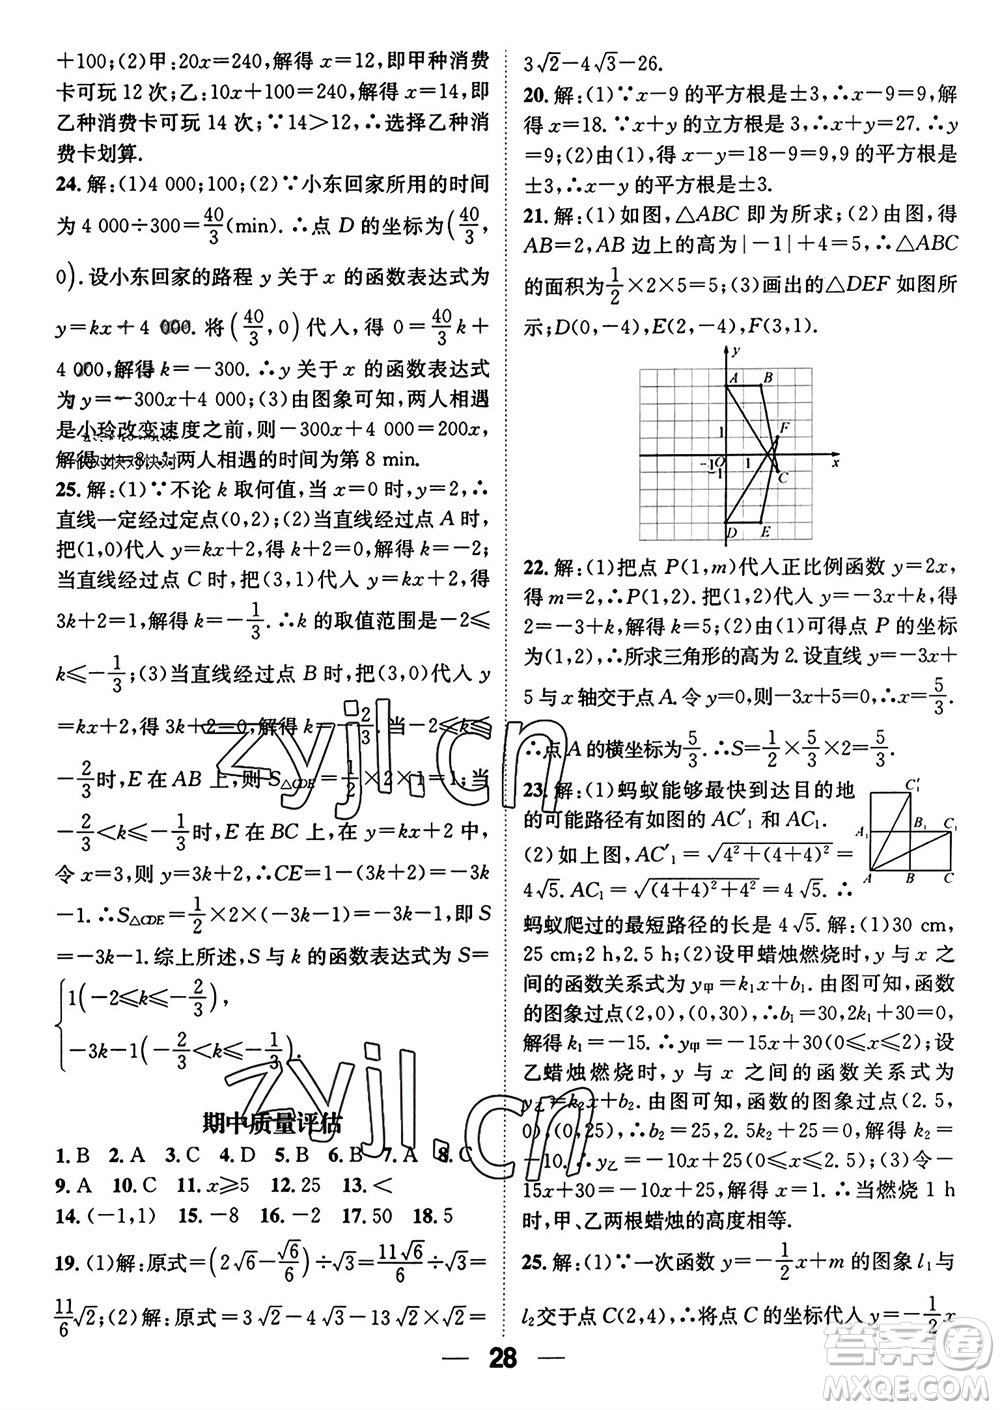 +100;(2)甲:20x=240,解得 x=12,即甲种消费
卡可玩 12 次;乙:10x+100=240,解得 x=14,即
乙种消费卡可玩 14 次;∵14>12,∴选择乙种消
费卡划算.
24. 解:(1)4 000;100;(2)∵小东回家所用的时间
为 4 000÷300=40/3(min).∴点 D 的坐标为(40/3,
0).设小东回家的路程 y 关于 x 的函数表达式为
y=kx+4 000. 将(40/3,0)代入,得 0=40/3k+
4 000,解得 k=-300.∴y 关于 x 的函数表达式
为 y=-300x+4 000;(3)由图象可知,两人相遇
是小玲改变速度之前,则-300x+4 000=200x,
解得 x=8.∴两人相遇的时间为第 8 min.
25. 解:(1)∵不论 k 取何值,当 x=0 时,y=2,∴
直线一定经过定点(0,2);(2)当直线经过点 A 时,
把(1,0)代入 y=kx+2,得 k+2=0.解得 k=-2;
当直线经过点 C 时,把(3,1)代入 y=kx+2,得
3k+2=1,解得 k=-1/3.∴k 的取值范围是-2≤
k≤-1/3;(3)当直线经过点 B 时,把(3,0)代入 y
=kx+2,得 3k+2=0,解得 k=-2/3.当-2≤k≤
-2/3时,E 在 AB 上,则 S△CDE=1/2×2×1=1;当
-2/3<k≤-1/3时,E 在 BC 上,在 y=kx+2 中,
令 x=3,则 y=3k+2,∴CE=1-(3k+2)=-3k
-1.∴S△CDE=1/2×2×(-3k-1)=-3k-1,即 S
=-3k-1.综上所述,S 与 k 的函数表达式为 S=
{1(-2≤k≤-2/3),
-3k-1(-2/3<k≤-1/3).
期中质量评估
1. B 2. A 3. C 4. D 5. B 6. B 7. A 8. C
9. A 10. C 11. x≥5 12. 25 13. <
14. (-1,1) 15. -8 16. -2 17. 50 18. 5
19. (1)解:原式=(2√6-√6/6)÷√3=11√6/6÷√3=
11/6√2;(2)解:原式=3√2-4√3-13√2×√2=
3√2-4√3-26.
20. 解:(1)∵x-9 的平方根是±3,∴x-9=9,解
得 x=18.∵x+y 的立方根是 3,∴x+y=27.∴y
=9;(2)由(1)得 x-y=18-9=9,9 的平方根是
±3,∴x-y 的平方根是±3.
21. 解:(1)如图,△ABC 即为所求;(2)由图,得
AB=2,AB 边上的高为|-1|+4=5,∴△ABC
的面积为1/2×2×5=5;(3)画出的△DEF 如图所
示;D(0,-4),E(2,-4),F(3,1).
y
A B
1 F
-1 O 1 x
-1 C
D E
22. 解:(1)把点 P(1,m)代入正比例函数 y=2x,
得 m=2,∴P(1,2).把(1,2)代入 y=-3x+k,得
2=-3+k,解得 k=5;(2)由(1)可得点 P 的坐标
为(1,2),∴所求三角形的高为 2.设直线 y=-3x+
5 与 x 轴交于点 A.令 y=0,则-3x+5=0,∴x=5/3.
∴点 A 的横坐标为5/3.∴S=1/2×5/3×2=5/3.
23. 解:(1)蚂蚁能够最快到达目的地
的可能路径有如图的 AC′1 和 AC1.
(2)如上图,AC′1=√(4²+(4+4)²)=
4√5.AC1=√((4+4)²+4²)=4√5.∴
C′1
A1 B1 C1
A B C
蚂蚁爬过的最短路径的长是 4√5.解:(1)30 cm,
25 cm;2 h,2.5 h;(2)设甲蜡烛燃烧时,y 与 x 之
间的函数关系式为 y甲=k1x+b1.由图可知,函数
的图象过点(2,0),(0,30),∴b1=30,2k1+30=0,
解得 k1=-15.∴y甲=-15x+30(0≤x≤2);设
乙蜡烛燃烧时,y 与 x 之间的函数关系式为
y乙=k2x+b2.由图可知,函数的图象过点(2.5,
0),(0,25),∴b2=25,2.5k2+25=0,解得 k2=
-10.∴y乙=-10x+25(0≤x≤2.5);(3)令
-15x+30=-10x+25,解得 x=1.∴当燃烧 1 h
时,甲、乙两根蜡烛的高度相等.
25. 解:(1)∵一次函数 y=-1/2x+m 的图象 l1与
l2交于点 C(2,4),∴将点 C 的坐标代入 y=-1/2x
— 28 —
zyjl.cn
zyjl.cn
答案圈
MXQE.COM